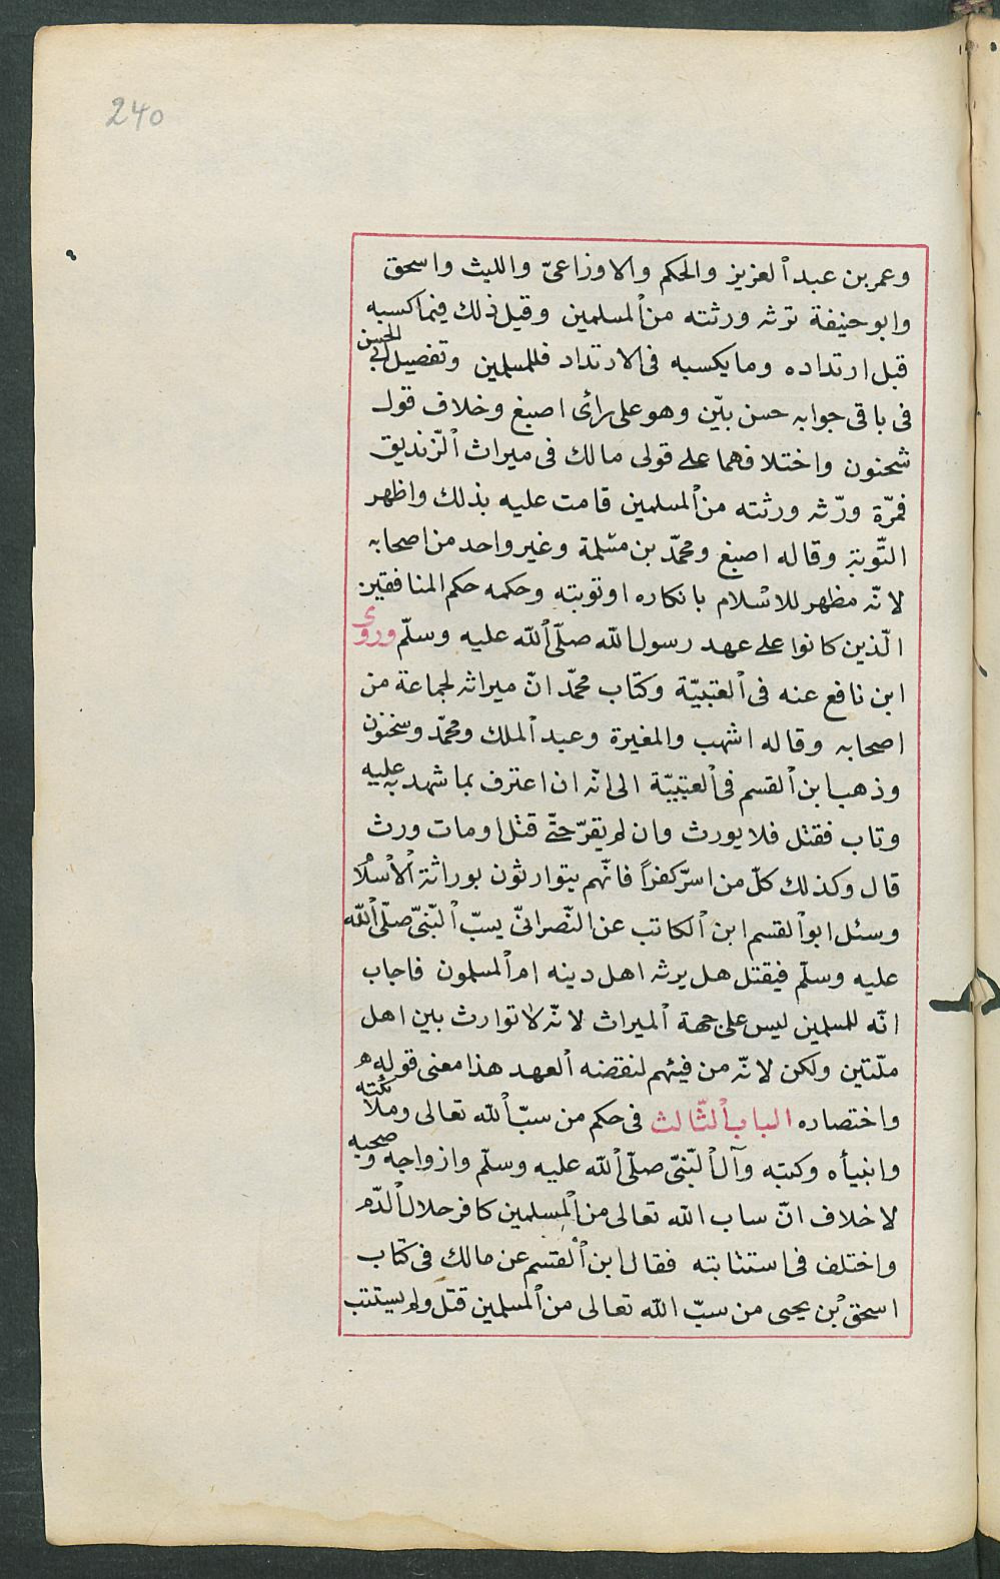 240
وعمر بن عبد العزيز والحكم والاوزاعىّ والليث واسحق
وابو حنيفة ترثه ورثته من المسلمين وقيل ذلك فيما كسبه
قبل ارتداده وما يكسبه فى الارتداد فللمسلمين وتفصيل ابى الحسن
فى باقى جوابه حسن بيّن وهو على رائ اصبغ وخلاف قول
سحنون واختلافهما على قولى مالك فى ميراث الزّنديق
فمرّة ورّثه ورثته من المسلمين قامت عليه بذلك واظهر
التّوبة وقاله اصبغ ومحمّد بن مسلمة وغير واحد من اصحابه
لانّه مظهر للاسلام بانكاره او توبته وحكمه حكم المنافقين
الّذين كانوا على عهد رسول الله صلّى الله عليه وسلّم وروى
ابن نافع عنه فى العتبيّة وكتاب محمّد انّ ميراثه لجماعة من
اصحابه وقاله اشهب والمغيرة وعبد الملك ومحمّد وسحنون
وذهب ابن القسم فى العتبيّة الى انّه ان اعترف بما شهد به عليه
وتاب فقتل فلا يورث وان لم يقرّ حتّى قتل او مات ورث
قال وكذلك كلّ من اسرّ كفراً فانّهم يتوارثون بوراثة الاسلا
وسئل ابو القسم ابن الكاتب عن النّصرانىّ يسبّ النّبىّ صلّى الله
عليه وسلّم فيقتل هل يرثه اهل دينه ام المسلمون فاجاب
انّه للمسلمين ليس على جهة الميراث لانّه لا توارث بين اهل
ملّتين ولكن لانّه من فيئهم لنقضه العهد هذا معنى قوله
واختصاره الباب الثّالث فى حكم من سبّ الله تعالى وملائكته
وانبيأه وكتبه وآل النّبىّ صلّى الله عليه وسلّم وازواجه وصحبه
لا خلاف انّ ساب الله تعالى من المسلمين كافر حلال الدّم
واختلف فى استتابته فقال ابن القسم عن مالك فى كتاب
اسحق بن يحيى من سبّ الله تعالى من المسلمين قتل ولم يستتب